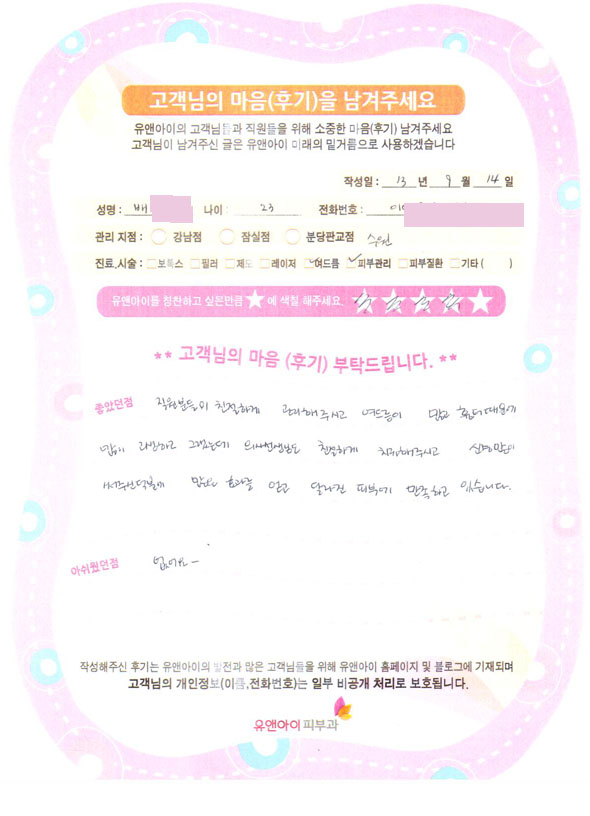 고객님의 마음(후기)을 남겨주세요
유앤아이의 고객님들과 직원들을 위해 소중한 마음(후기) 남겨주세요
고객님이 남겨주신 글은 유앤아이 미래의 밑거름으로 사용하겠습니다
작성일 : 13 년 9 월 14 일
성명 : 배 나이 : 23 전화번호 : 01
관리 지점 : 강남점 잠실점 분당판교점 수원
진료,시술 : 보톡스 필러 제모 레이저 여드름 피부관리 피부질환 기타 ( )
유앤아이를 칭찬하고 싶은만큼 ★ 에 색칠 해주세요
** 고객님의 마음 (후기) 부탁드립니다. **
좋았던점 직원분들이 친절하게 관리해주시고 여드름이 많고 때문에
그랬는데 의사선생님도 친절하게 치료해주시고 신경많이
써주신덕분에 많은 효과를 얻고 달라진 피부에 만족하고 있습니다.
아쉬웠던점 없어요
작성해주신 후기는 유앤아이의 발전과 많은 고객님들을 위해 유앤아이 홈페이지 및 블로그에 기재되며
고객님의 개인정보(이름,전화번호)는 일부 비공개 처리로 보호됩니다.
유앤아이피부과